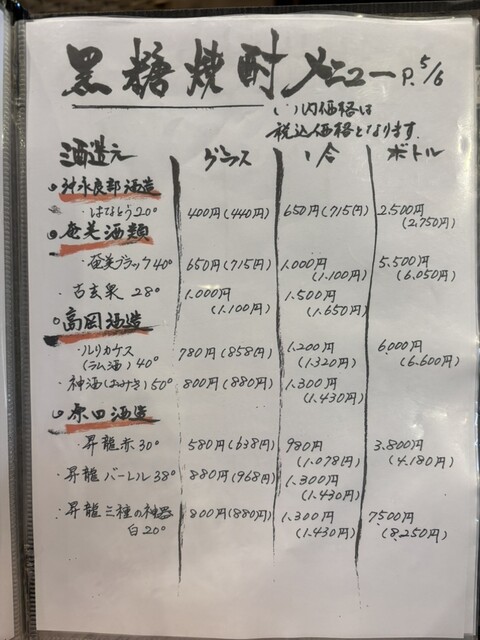 黒糖焼酎メニュー P.5/6
( )内価格は
税込価格となります.
酒造元 グラス 1合 ボトル
沖永良部酒造
・はなとう20° 400円(440円) 650円(715円) 2.500円
(2.750円)
奄美酒類
・奄美ブラック40° 650円(715円) 1.000円 5.500円
(1.100円) (6.050円)
・古玄泉 28° 1.000円 1.500円
(1.100円) (1.650円)
高岡酒造
・ルリカケス 780円(858円) 1.200円 6.000円
(ラム酒) 40° (1.320円) (6.600円)
・神酒(おみき)50° 800円(880円) 1.300円
(1.430円)
原田酒造
・昇龍赤30° 580円(638円) 980円 3.800円
(1.078円) (4.180円)
・昇龍バーレル38° 880円(968円) 1.300円
(1.430円)
・昇龍三種の神器 800円(880円) 1.300円 7500円
白20° (1.430円) (8.250円)